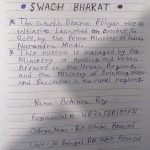 SWACH BHARAT
* The Swachh Bharat Abhiyan was an
initiative Launched on October 2,
2014, by the Prime Minister of India,
Narendra Modi.
* This mission is managed by the
Ministry of Housing and Urban
Affairs in the Urban Regions,
and the Ministry of Drinking Water
and Sanitation in the rural regions.
Name:- Achintya Roy
Regimental No:-
College Name:-
Unit:- 10 Bengal BN NCC